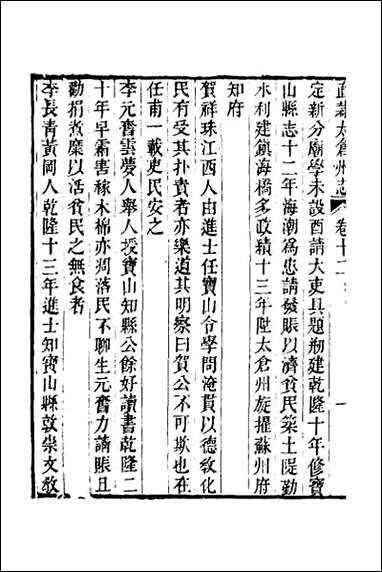 直隸太倉州志 卷十二
定新分廟學未設酉請大吏具題剏建乾隆十年修寶
山縣志十二年海潮為患請發賑以濟貧民築土隄勤
水利建鎮海橋多政績十三年陞太倉州旋擢蘇州府
知府
賀祥珠江西人由進士任寶山令學問淹貫以德敎化
民有受其扑責者亦樂道其明察曰賀公不可欺也在
任甫一載吏民安之
李元奮雲夢人舉人授寶山知縣公餘好讀書乾隆二
十年旱霜害稼木棉亦凋落民不聊生元奮力請賑且
勸捐煮糜以活貧民之無食者
李長青黃岡人乾隆十三年進士知寶山縣敦崇文敎